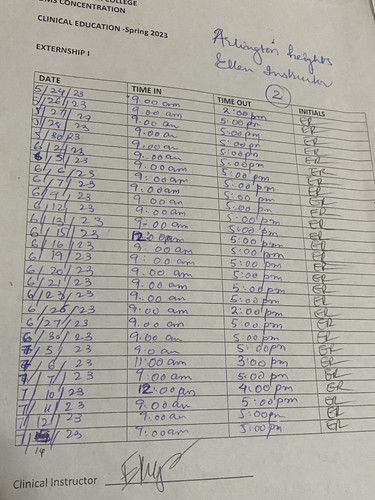 COLLEGE
DMS CONCENTRATION
CLINICAL EDUCATION -Spring 2023
Arlington heights
Ellen Instructor
EXTERNSHIP I
2
DATE TIME IN TIME OUT INITIALS
5/24/23 9:00 am 2:00 pm ER
5/26/23 9:00 am 5:00 pm ER
5/27/23 9:00 am 5:00pm ER
5/29/23 9:00 am 5:00pm ER
5/30/23 9:00 am 5:00pm ER
6/2/23 9:00am 5:00pm ER
6/5/23 9:00am 5:00pm ER
6/6/23 9:00am 5:00pm ER
6/7/23 9:00am 5:00pm ER
6/9/23 9:00am 5:00pm ER
6/12/23 9:00am 5:00pm ER
6/13/23 9:00 am 5:00 pm ER
6/15/23 12:00pm 5:00pm ER
6/16/23 9:00am 5:00 pm ER
6/19/23 9:00am 5:00 pm ER
6/20/23 9:00 am 5:00 pm ER
6/21/23 9:00 am 5:00pm ER
6/23/23 9:00 am 5:00pm ER
6/26/23 9:00 am 2:00pm ER
6/27/23 9:00 am 5:00pm ER
6/30/23 9:00 am 5:00pm ER
7/5/23 9:00 am 5:00pm ER
7/6/23 11:00 am 3:00pm ER
7/7/23 9:00am 5:00 pm ER
7/10/23 12:00 am 4:00pm ER
7/11/23 9:00 am 5:00pm ER
7/12/23 9:00am 5:00pm ER
7/ /23 9:00am 5:00pm ER
14
Clinical Instructor